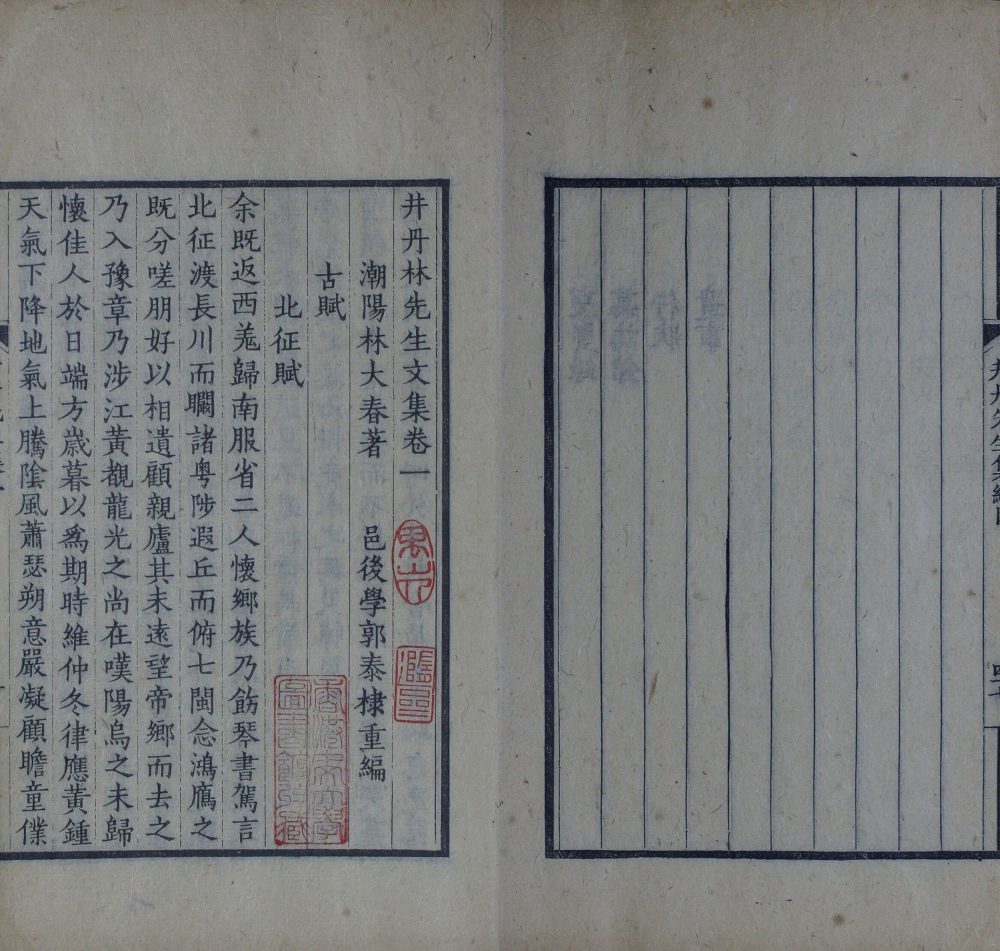 井丹林先生文集卷一
潮陽林大春著 邑後學郭泰棣重編
古賦
北征賦
余既返西羗歸南服省二人懷鄉族乃飭琴書駕言
北征渡長川而矙諸粤陟遐丘而俯七閩念鴻鴈之
既分嗟朋好以相遺顧親廬其未遠望帝鄉而去之
乃入豫章乃涉江黃覩龍光之尚在嘆陽烏之未歸
懷佳人於日端方歲暮以爲期時維仲冬律應黃鍾
天氣下降地氣上騰陰風蕭瑟朔意嚴凝顧瞻童僕